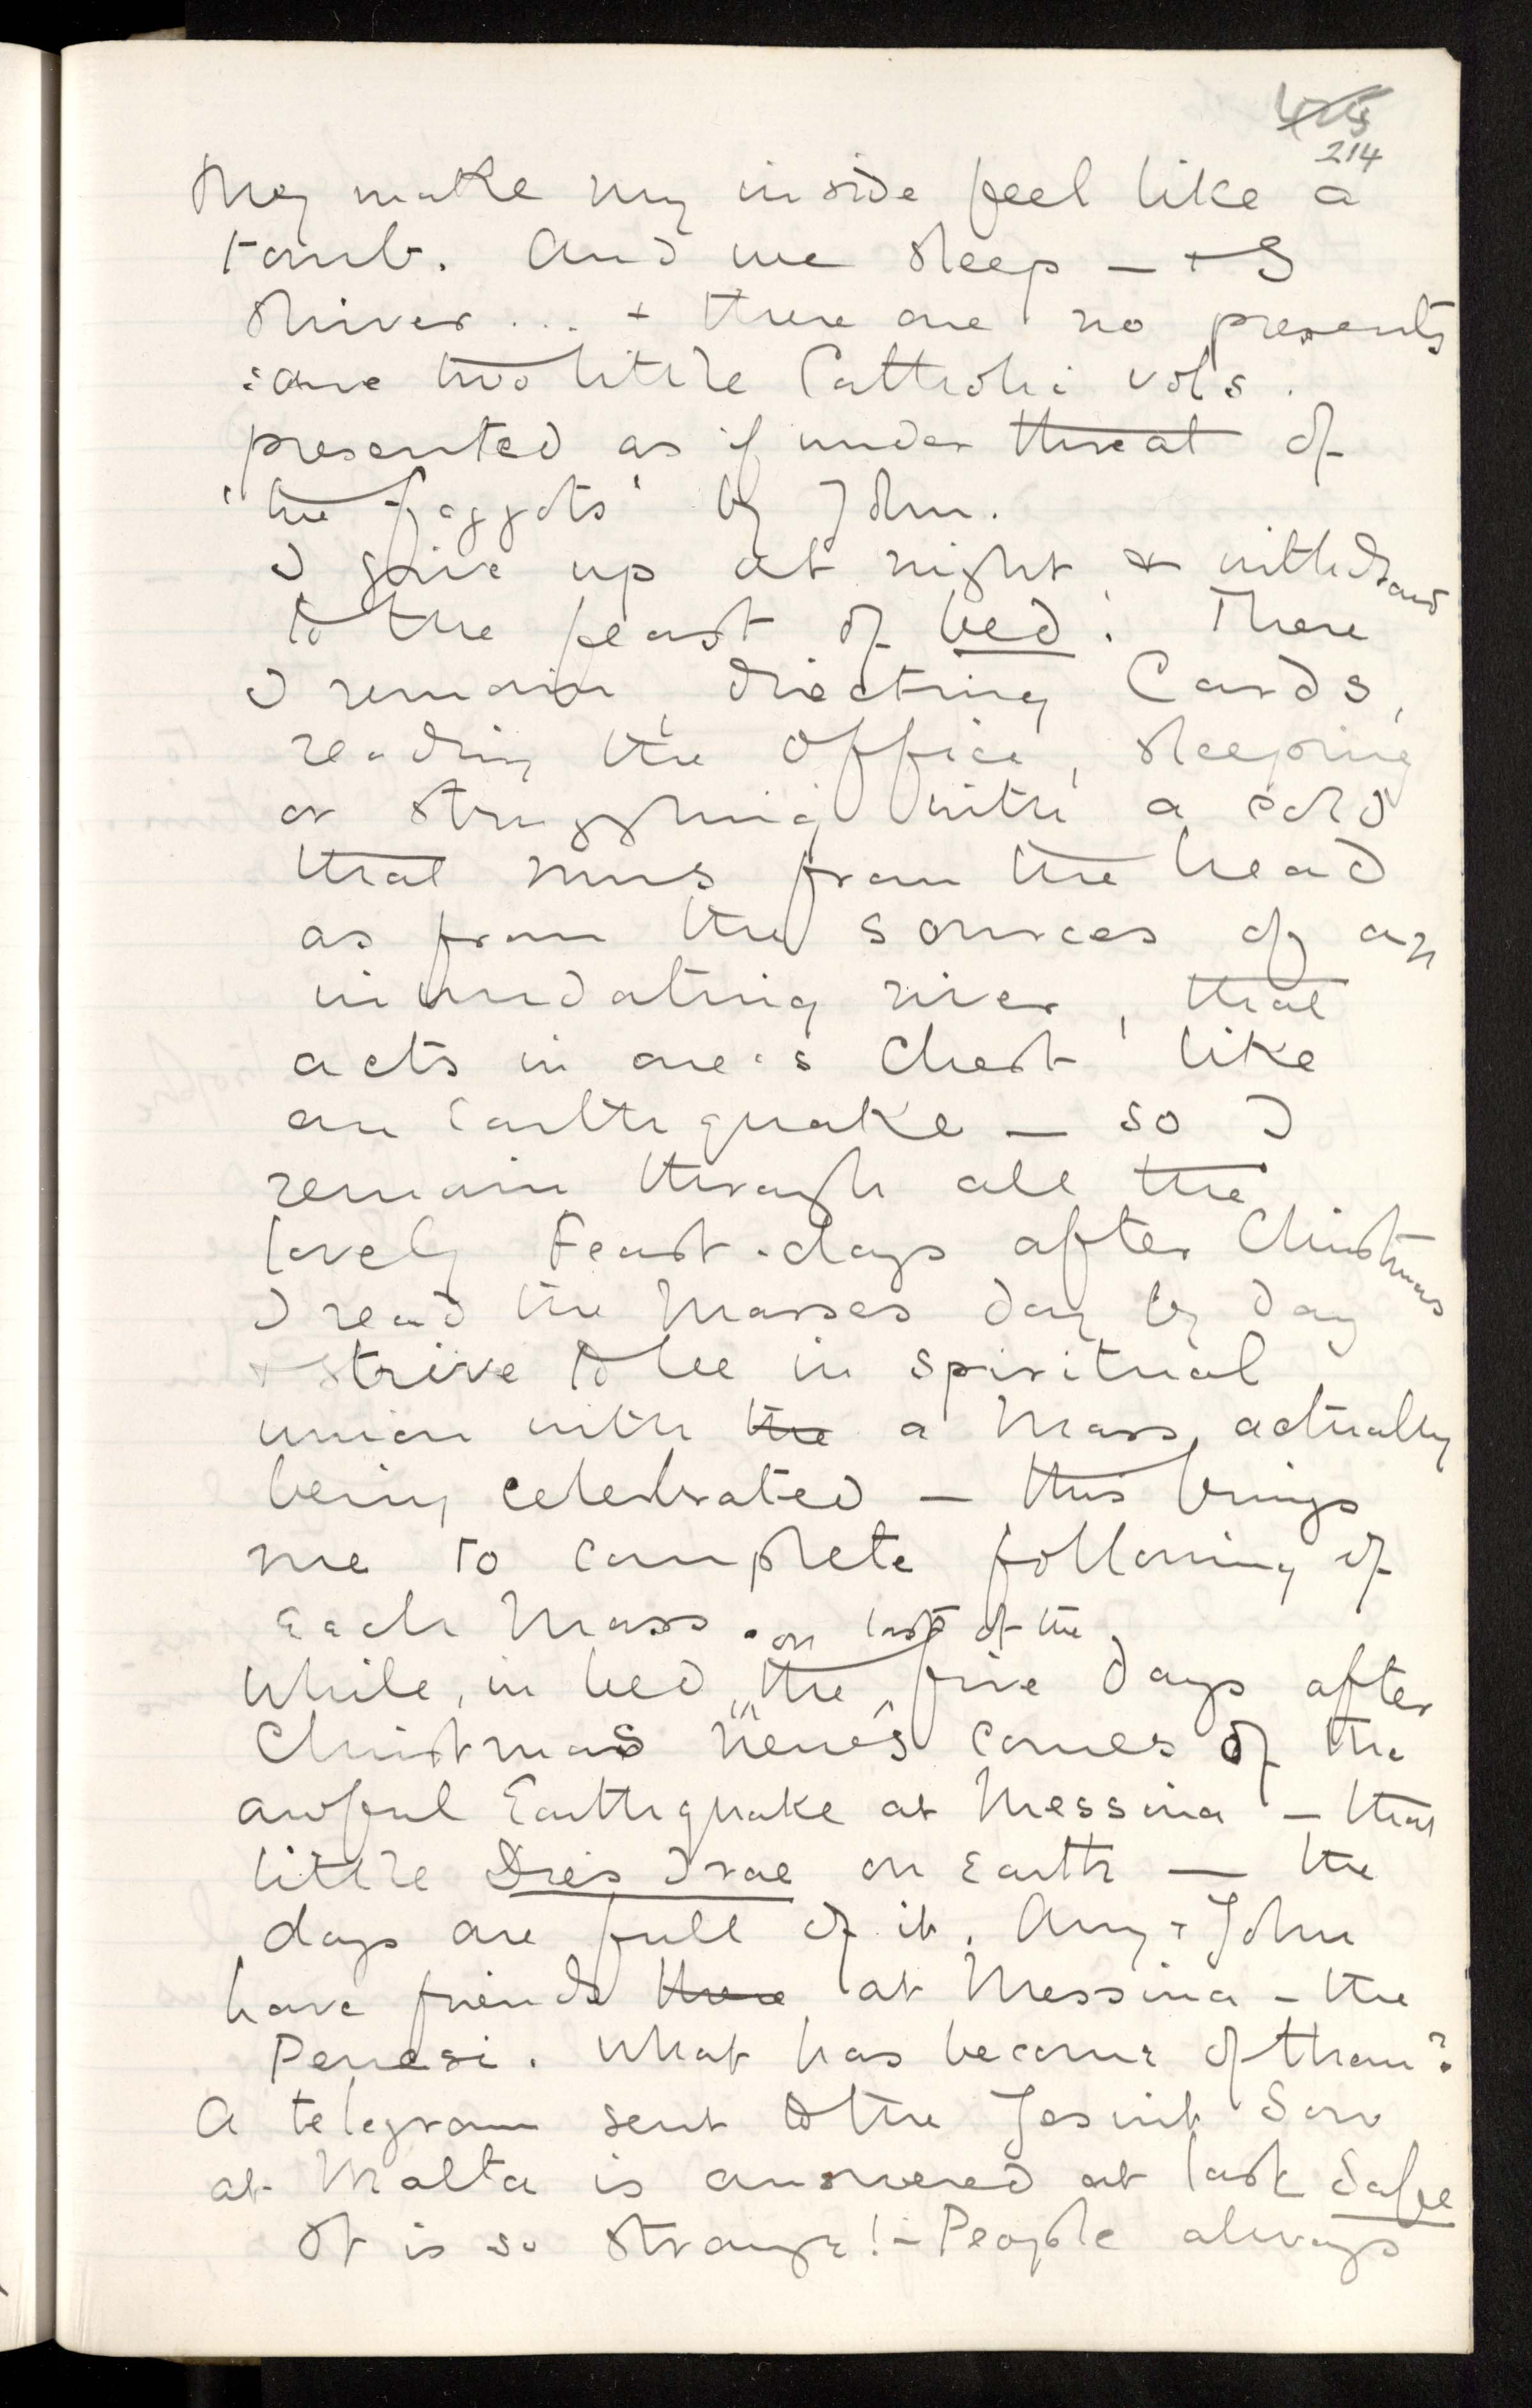 214
they make my inside feel like a
tomb. And we sleep — + I
shiver ... + there are no presents
save two little Catholic vols.
presented as if under threat of
'the faggots' by John.
I give up at night & withdraw
to the feast of bed. There
I remain, directing Cards,
reading the Office, sleeping
or struggling with a cold
that runs from the head
as from the sources of an
inundating river, that
acts in one's chest like
an Earthquake — so I
remain through all the
lovely Feast-days after Christmas
I read the Masses day by day
& strive to be in spiritual
union with the a Mass actually
being celebrated — this brings
me to complete following of
Each Mass.
on last of the
While, in bed, the five days after
Christmas news comes of the
awful Earthquake at Messina — that
little Dies Irae on Earth — the
days are full of it. Amy + John
have friends there at Messina — the
Penesi. What has become of them?
A telegram sent to the Jesuit Son
at Malta is answered at last Safe
It is so strange! — People always